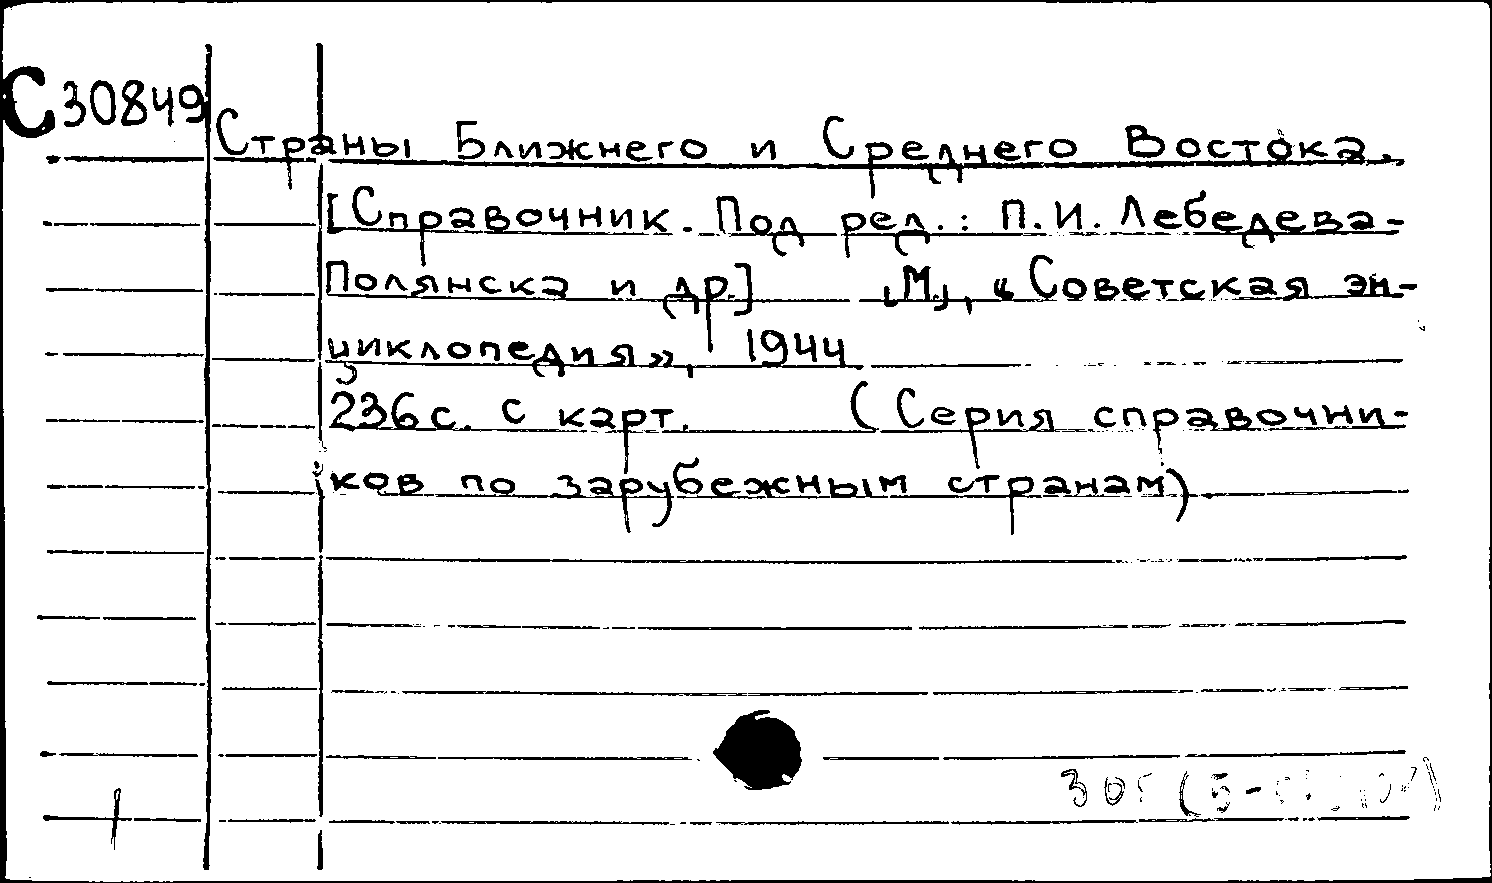 С30849
Страны Ближнего и Среднего Востока.
[Справочник. Под ред.: П.И. Лебедева-
Полянска и др.] [М.], «Советская эн-
циклопедия», 1944
236с. с карт. (Серия справочни-
ков по зарубежным странам).